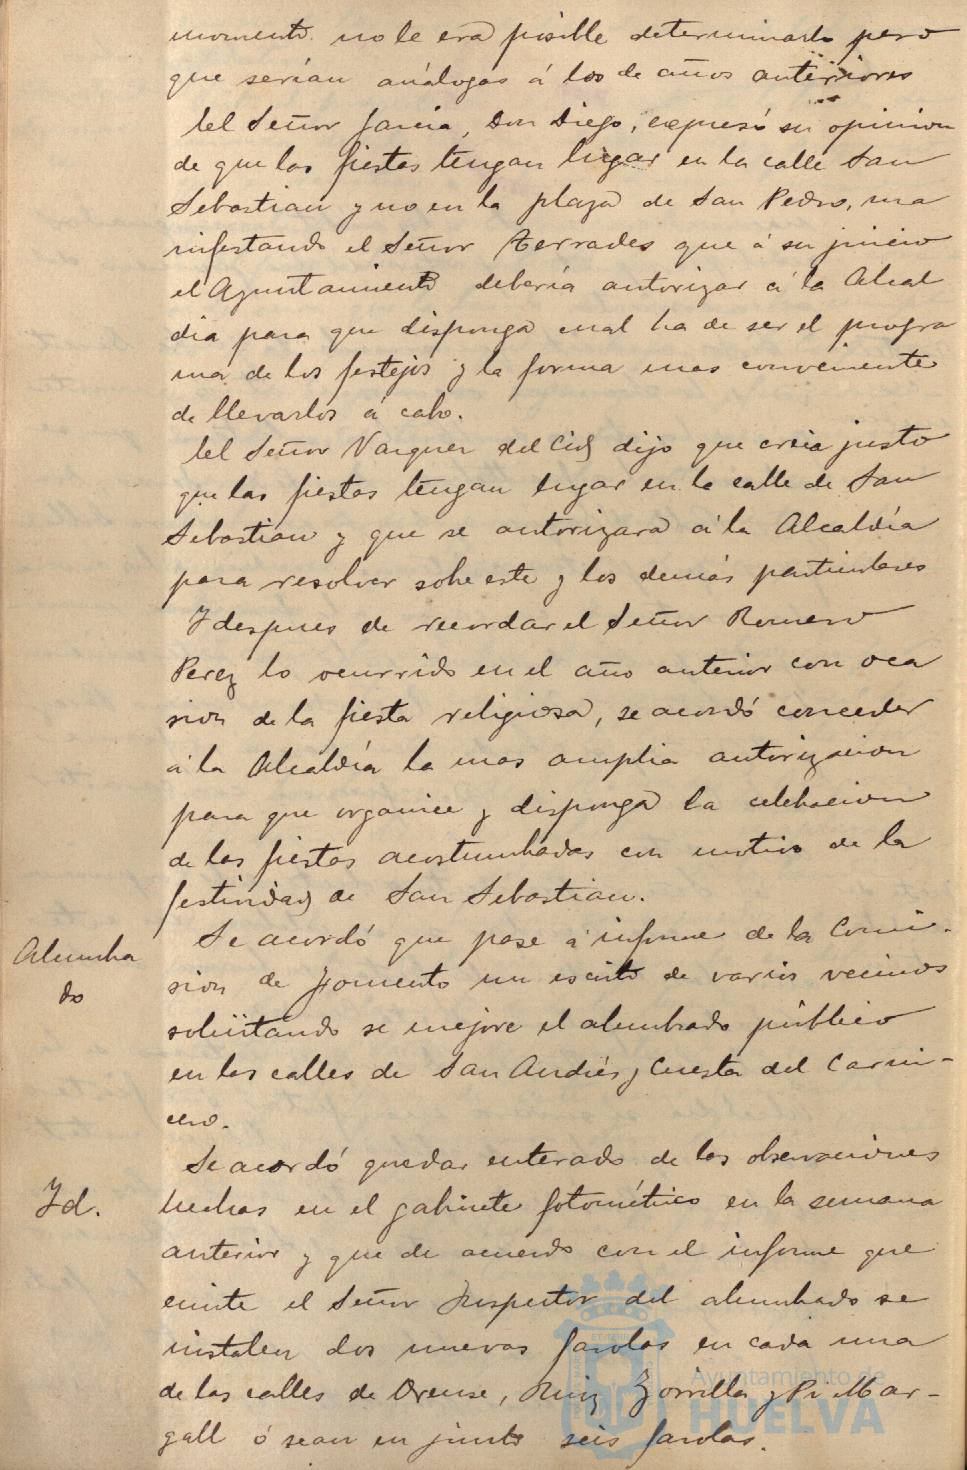 momento no le era posible determinarlo pero
que serían análogas á los de años anteriores
El Señor García, Don Diego, expresó su opinion
de que las fiestas tengan lugar en la calle San
Sebastian y no en la plaza de San Pedro, ma
nifestando el Señor Terrades que á su juicio
el Ayuntamiento debería autorizar á la Alcal
día para que disponga cual ha de ser el progra
ma de los festejos y la forma mas conveniente
de llevarlos á cabo.
El Señor Vazquez del Cid dijo que creia justo
que las fiestas tengan lugar en la calle de San
Sebastian y que se autorizara á la Alcaldía
para resolver sobre este y los demás particulares
Y despues de recordar el Señor Romero
Perez lo ocurrido en el año anterior con oca
sion de la fiesta religiosa, se acordó conceder
á la Alcaldía la mas amplia autorizacion
para que organice y disponga la celebracion
de las fiestas acostumbradas con motivo de la
festividad de San Sebastian.
Alumbra
do
Se acordó que pase á informe de la Comi-
sion de Fomento un escrito de varios vecinos
solicitando se mejore el alumbrado público
en las calles de San Andrés y Cuesta del Carni-
cero.
Id.
Se acordó quedar enterado de las observaciones
hechas en el gabinete fotométrico en la semana
anterior y que de acuerdo con el informe que
emite el Señor Inspector del alumbrado se
instalen dos nuevas farolas en cada una
de las calles de Orense, Ruiz Zorrilla y Pi Mar-
gall ó sean en junto seis farolas.
Ayuntamiento de
HUELVA